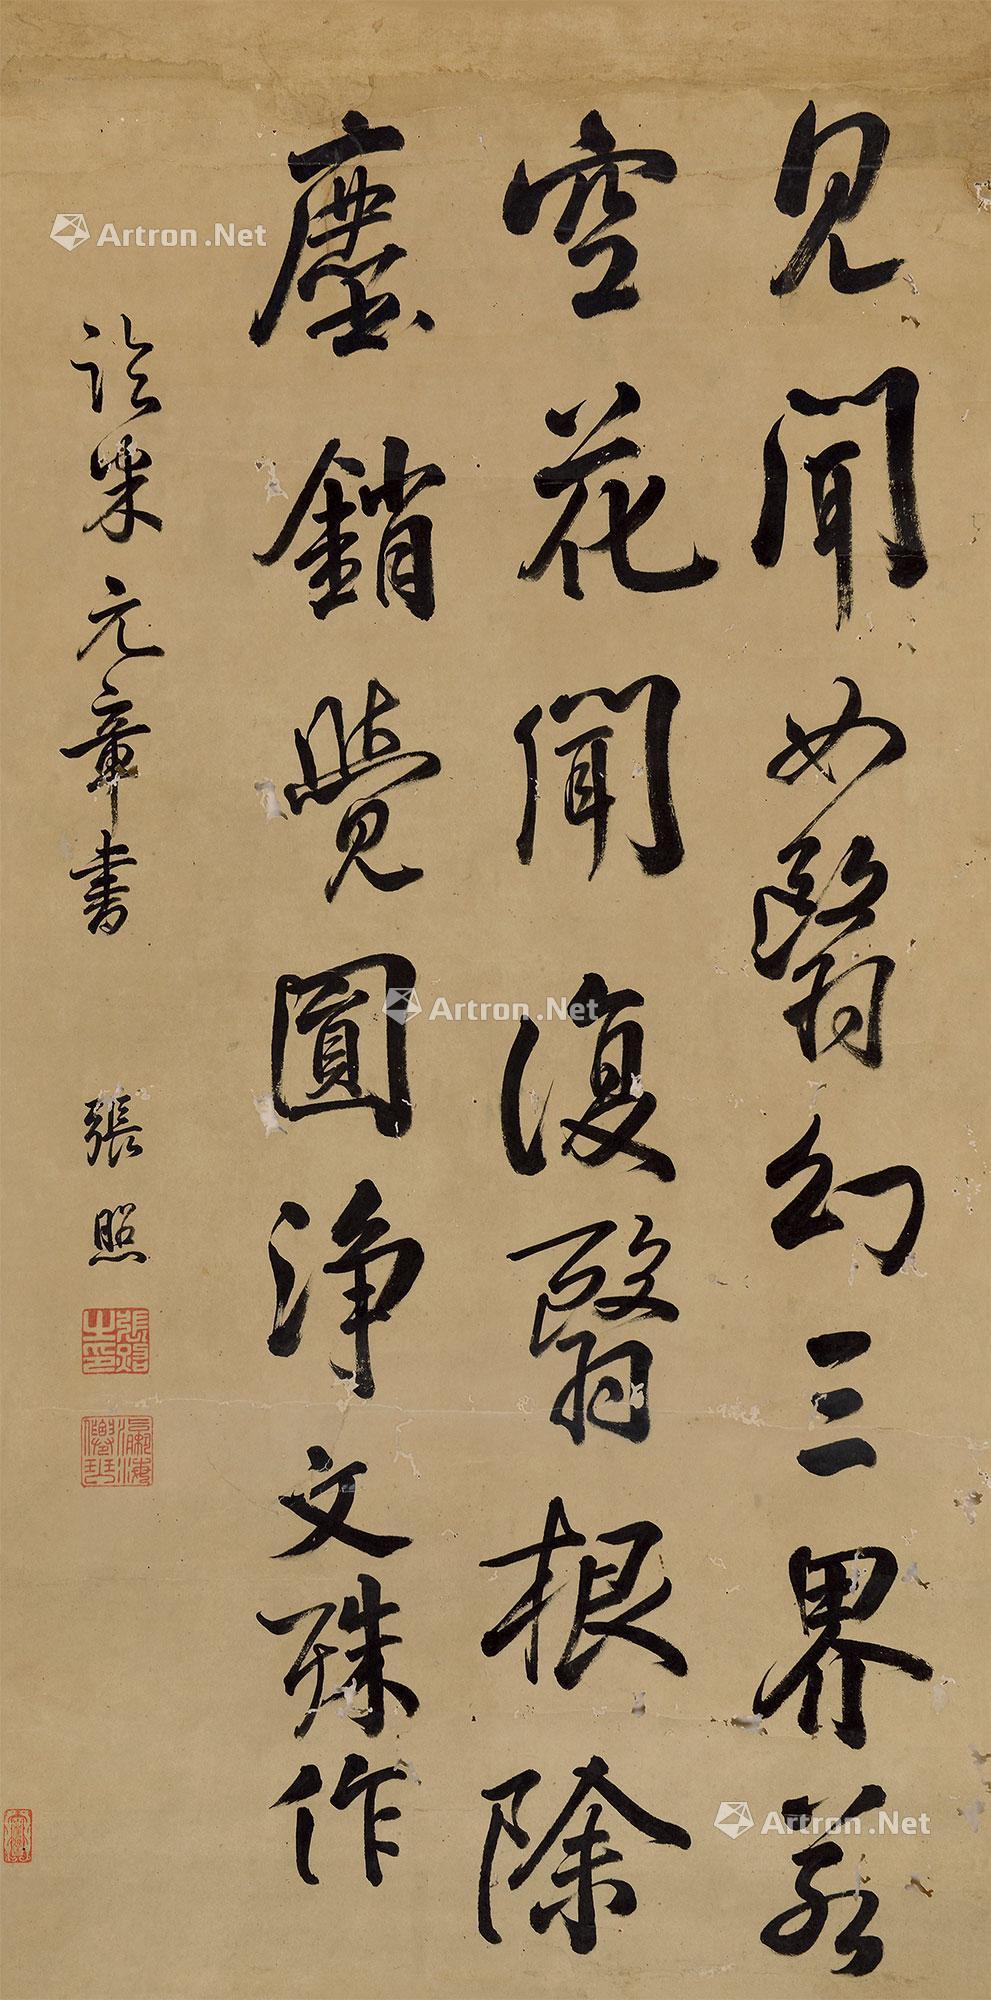 見聞如翳幻三界若
空花聞復翳根除
塵銷覺圓淨文殊作
臨米元章書 張照
張照之印
瀛海僊琴
Artron.Net
Artron.Net
Artron.Net